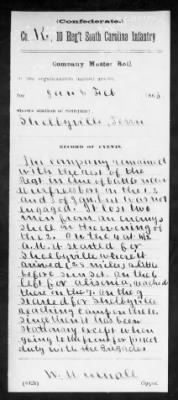 (Confederate.)
Co. K, 10 Reg't South Carolina Infantry
Company Muster Roll
for Jan & Feb 1863.
Station of company,
Shelbyville, Tenn
RECORD OF EVENTS.
This company remained
with the rest of the
Regt in line of battle near
Murfreesboro on the 1.2
and 3 of Jan. but was not
engaged. It lost two
men from an enemys
shell on the evening of
the 2. On the 4 at
A.M. it started for
Shelbyville where it
arrived miles
before sun set. On the 6
left for reached
there on the 7. on the 9
started for Shelbyville
reaching camp on the 10.
Since then it has been
stationary except when
going to the front on picket
duty with the Brigade.
Copyist.